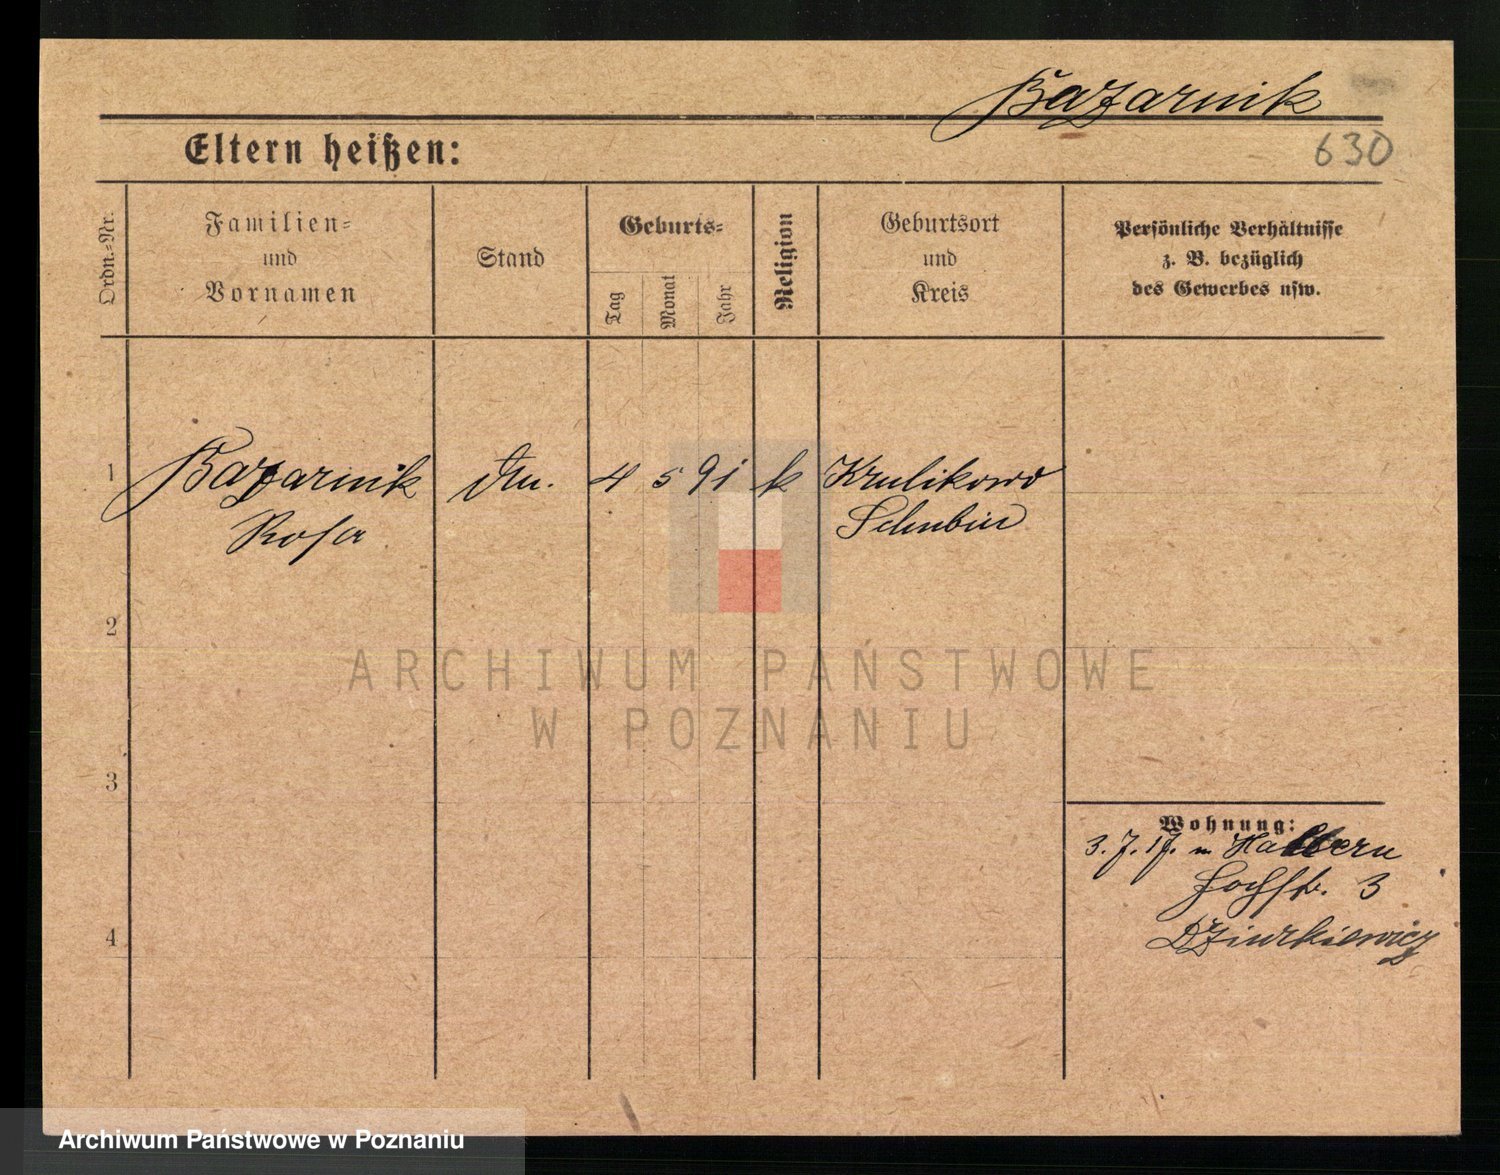 Bazarnik
630
Eltern heißen:
Ordn.-Nr.
Familien-
und
Vornamen
Stand
Geburts-
Tag
Monat
Jahr
Religion
Geburtsort
und
Kreis
Persönliche Verhältnisse
z. B. bezüglich
des Gewerbes usw.
1 Bazarnik 4 5 91 k Krulikowo
Rosa Schubin
2
3
4
Wohnung:
3. 7. 17.
Hochstr. 3
Dziurkiewicz
ARCHIWUM PAŃSTWOWE
W POZNANIU
Archiwum Państwowe w Poznaniu